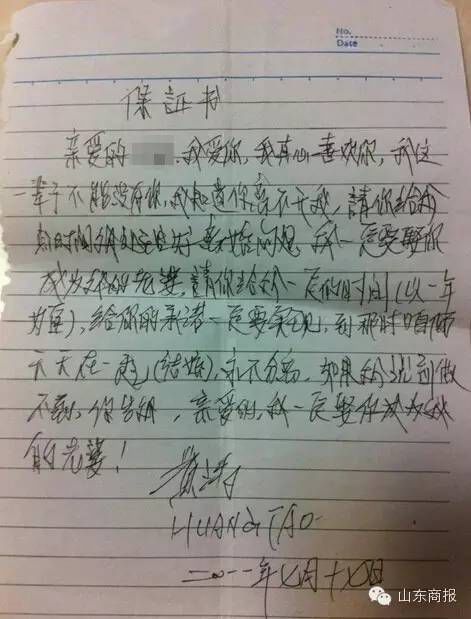 No.
Date
保证书
亲爱的 ,我爱你,我真心喜欢你,我这
一辈子不能没有你,我知道你离不开我,請你给我
时间 处 好 婚 问题,我一定要娶你
成为我的老婆,請你给我一定的时间(以一年
为 ),给你的承诺一定要实现,到那时咱俩
天天在一起(结婚),永不分离,如果我说到做
不到,你告我,亲爱的,我一定娶你成为我
的老婆!
黄涛
HUANG TAO
二〇一一年七月十七日
山东商报